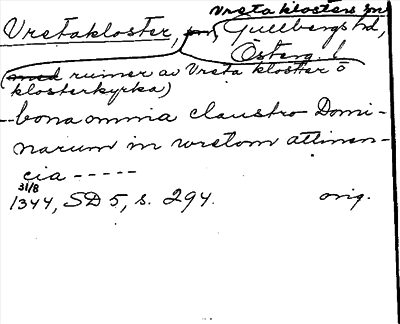 Vreta klosters sn
Vretakloster, sn, Gullbergs hd,
Österg. l
(med ruiner av Vreta kloster o
klosterkyrka)
--bona omnia claustro Domi-
narum in wretom attinen-
cia -----
31/8
1344, SD 5, s. 294. orig.